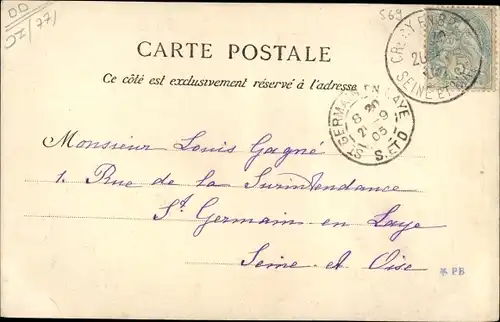 DD
77
569
CARTE POSTALE
Ce côté est exclusivement réservé à l'adresse
SEINE ET
5
ST GERMAIN EN LAYE
8 20
21 -9
05
S. ET O
Monsieur Louis Gagné
1. Rue de la Surintendance
St Germain en Laye
Seine et Oise
* PB